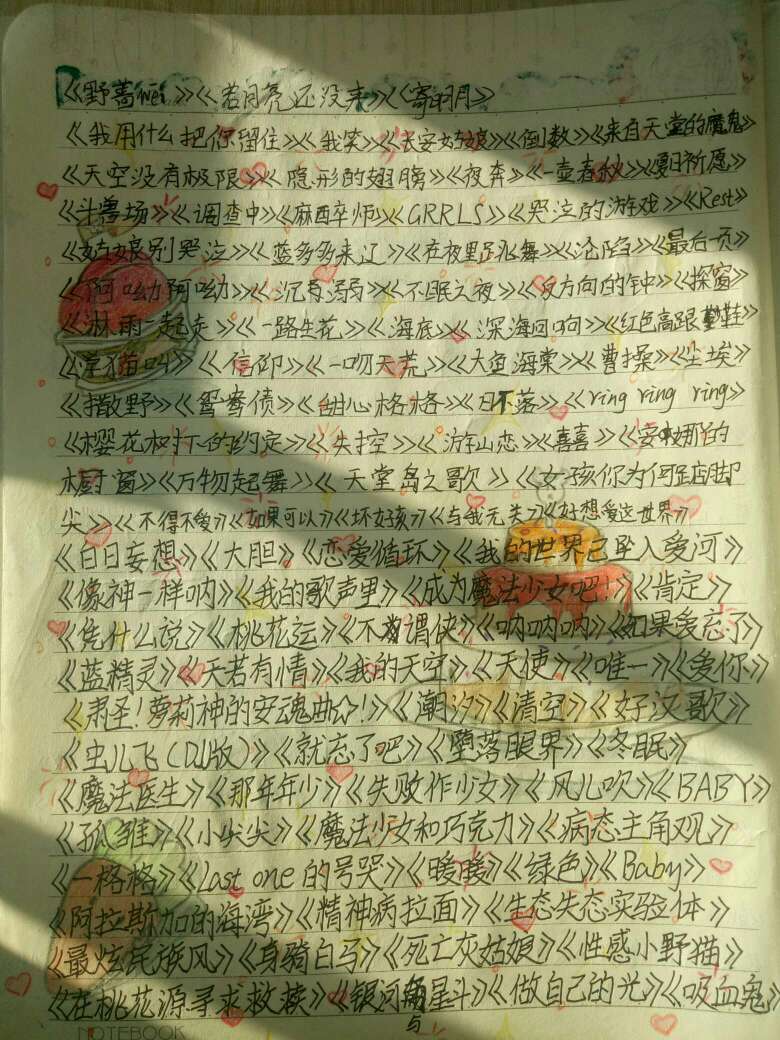 《野蔷wei》《若月亮还没来》《寄明月》
《我用什么把你留住》《我笑》《长安姑娘》《倒数》《来自天堂的魔鬼》
《天空没有极限》《隐形的翅膀》《夜奔》《一壶春秋》《夏日祈愿》
《斗兽场》《调查中》《麻酉卒师》《GRRLS》《哭泣的游戏》《Rest》
《姑娘别哭泣》《蓝多多来辽》《在夜里跳舞》《沦陷》《最后一页》
《阿呦阿呦》《沉溺》《不眠之夜》《反方向的钟》《探窗》
《淋雨一起走》《一路生花》《海底》《深海回响》《红色高跟鞋》
《学猫叫》《信仰》《一吻天荒》《大鱼海棠》《曹操》《尘埃》
《撒野》《鸳鸯债》《甜心格格》《日不落》《ring ring ring》
《樱花树下的约定》《失控》《游山恋》《喜喜》《安妮的
橱窗》《万物起舞》《天堂岛之歌》《女孩你为何踮脚
尖》《不得不爱》《如果可以》《坏女孩》《与我无关》《好想爱这世界》
《白日妄想》《大胆》《恋爱循环》《我的世界已坠入爱河》
《像神一样呐》《我的歌声里》《成为魔法少女吧！》《肯定》
《凭什么说》《桃花运》《不谓侠》《呐呐呐》《如果爱忘了》
《蓝精灵》《天若有情》《我的天空》《天使》《唯一》《爱你》
《肃圣！萝莉神的安魂曲☆！》《潮汐》《清空》《好汉歌》
《虫儿飞（DJ版）》《就忘了吧》《堕落眼界》《冬眠》
《魔法医生》《那年年少》《失败作少女》《风儿吹》《BABY》
《孤雏》《小尖尖》《魔法少女和巧克力》《病态主角观》
《一格格》《Last one 的号哭》《暖暖》《绿色》《Baby》
《阿拉斯加的海湾》《精神病拉面》《生态失态实验体》
《最炫民族风》《身骑白马》《死亡灰姑娘》《性感小野猫》
《在桃花源寻求救赎》《银河与星斗》《做自己的光》《吸血鬼》
NOTEBOOK